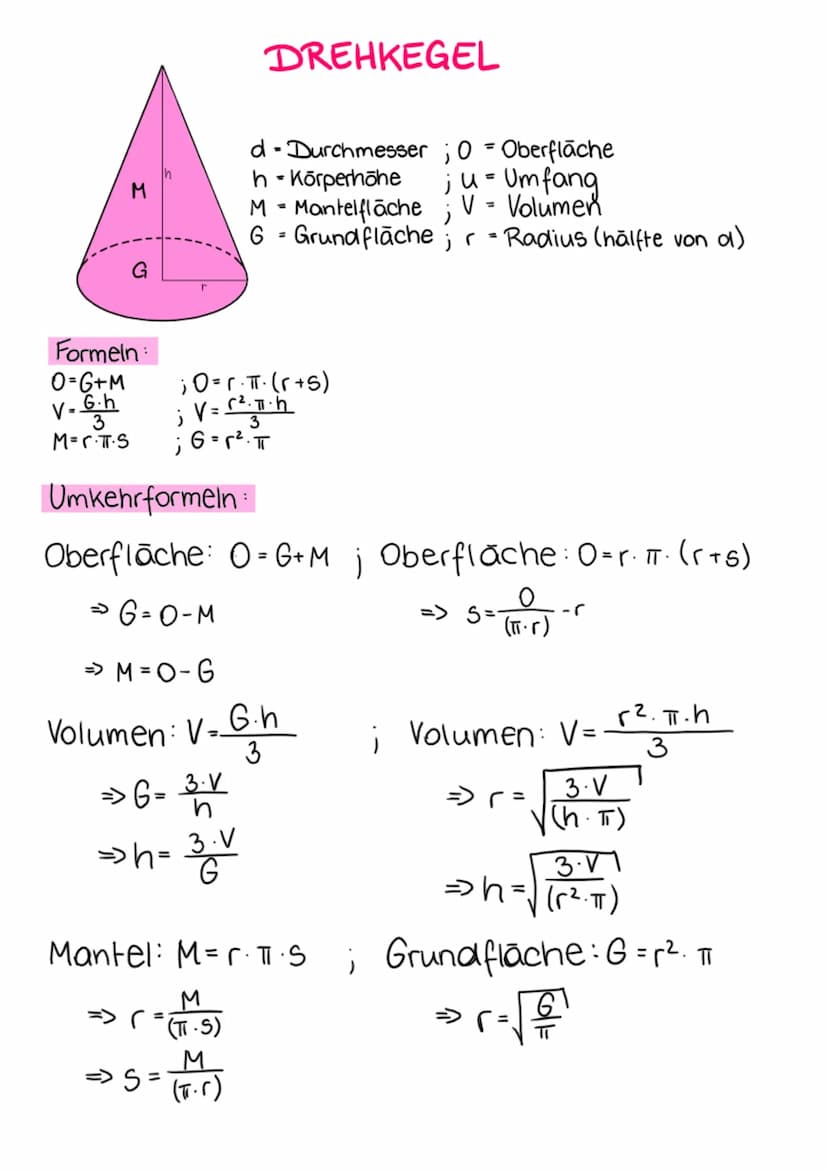 DREHKEGEL
d - Durchmesser ; O = Oberfläche
h - Körperhöhe ; u = Umfang
M = Mantelfläche ; V = Volumen
G = Grundfläche ; r = Radius (hälfte von d)
h
M
G
r
Formeln:
O=G+M ; O=r·π·(r+s)
V=G·h/3 ; V=r²·π·h/3
M=r·π·s ; G=r²·π
Umkehrformeln:
Oberfläche: O=G+M ; Oberfläche: O=r·π·(r+s)
=> G=O-M => s=O/(π·r)-r
=> M=O-G
Volumen: V=G·h/3 ; Volumen: V=r²·π·h/3
=> G=3·V/h => r=√(3·V/(h·π))
=> h=3·V/G => h=√(3·V/(r²·π))
Mantel: M=r·π·s ; Grundfläche: G=r²·π
=> r=M/(π·s) => r=√(G/π)
=> s=M/(π·r)